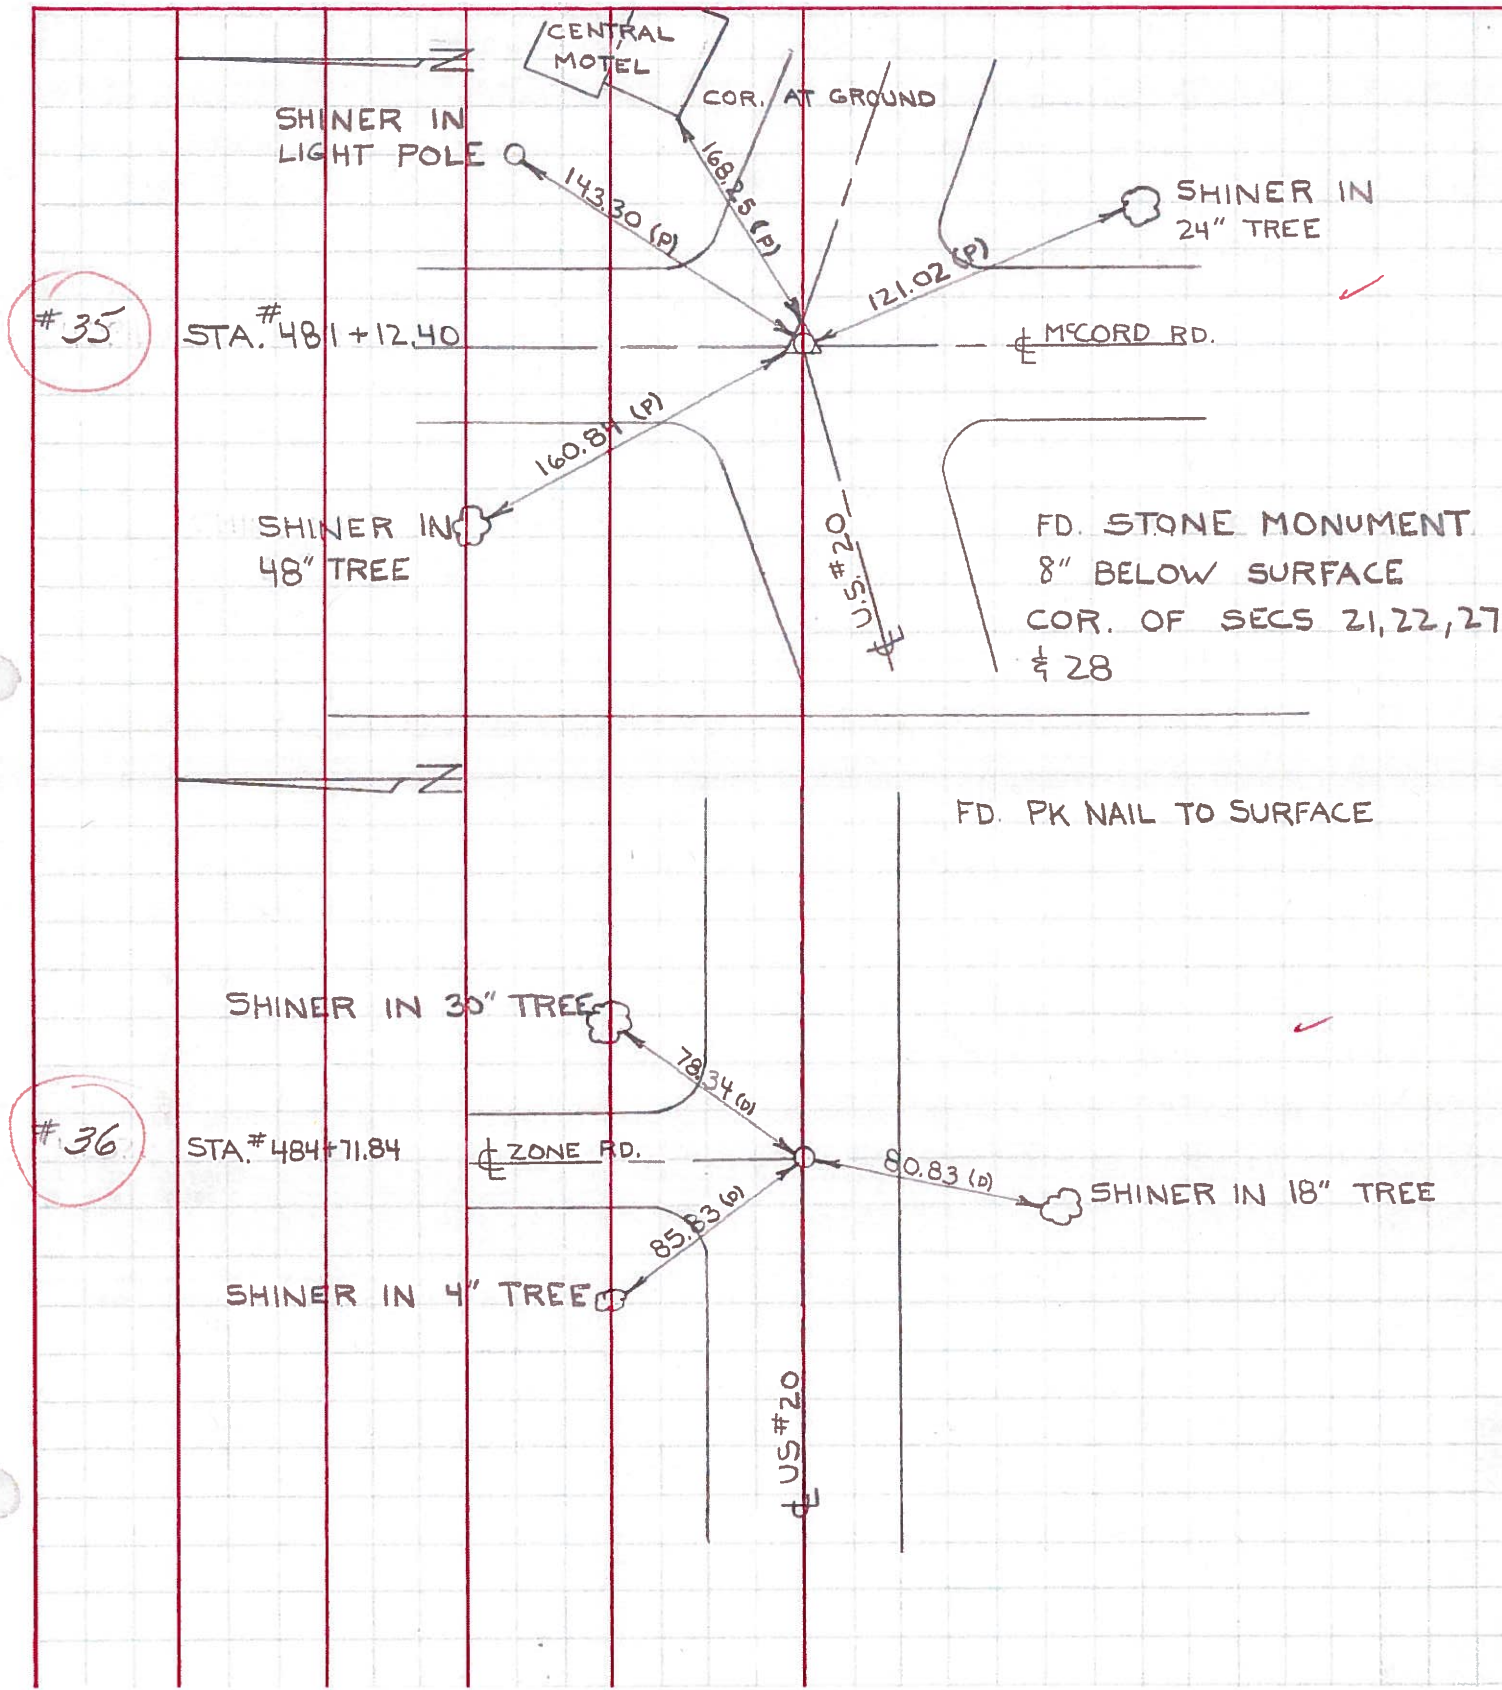 CENTRAL
MOTEL
N
COR. AT GROUND
SHINER IN
LIGHT POLE
168.25 (P)
143.30 (P)
SHINER IN
24" TREE
121.02 (P)
# 35
STA.# 481+12.40
℄ McCORD RD.
160.84 (P)
SHINER IN
48" TREE
U.S. #20
℄
FD. STONE MONUMENT
8" BELOW SURFACE
COR. OF SECS 21,22,27
& 28
N
FD. PK NAIL TO SURFACE
SHINER IN 30" TREE
78.34 (D)
# 36
STA.# 484+71.84
℄ ZONE RD.
80.83 (D)
SHINER IN 18" TREE
85.83 (D)
SHINER IN 4" TREE
℄ US #20